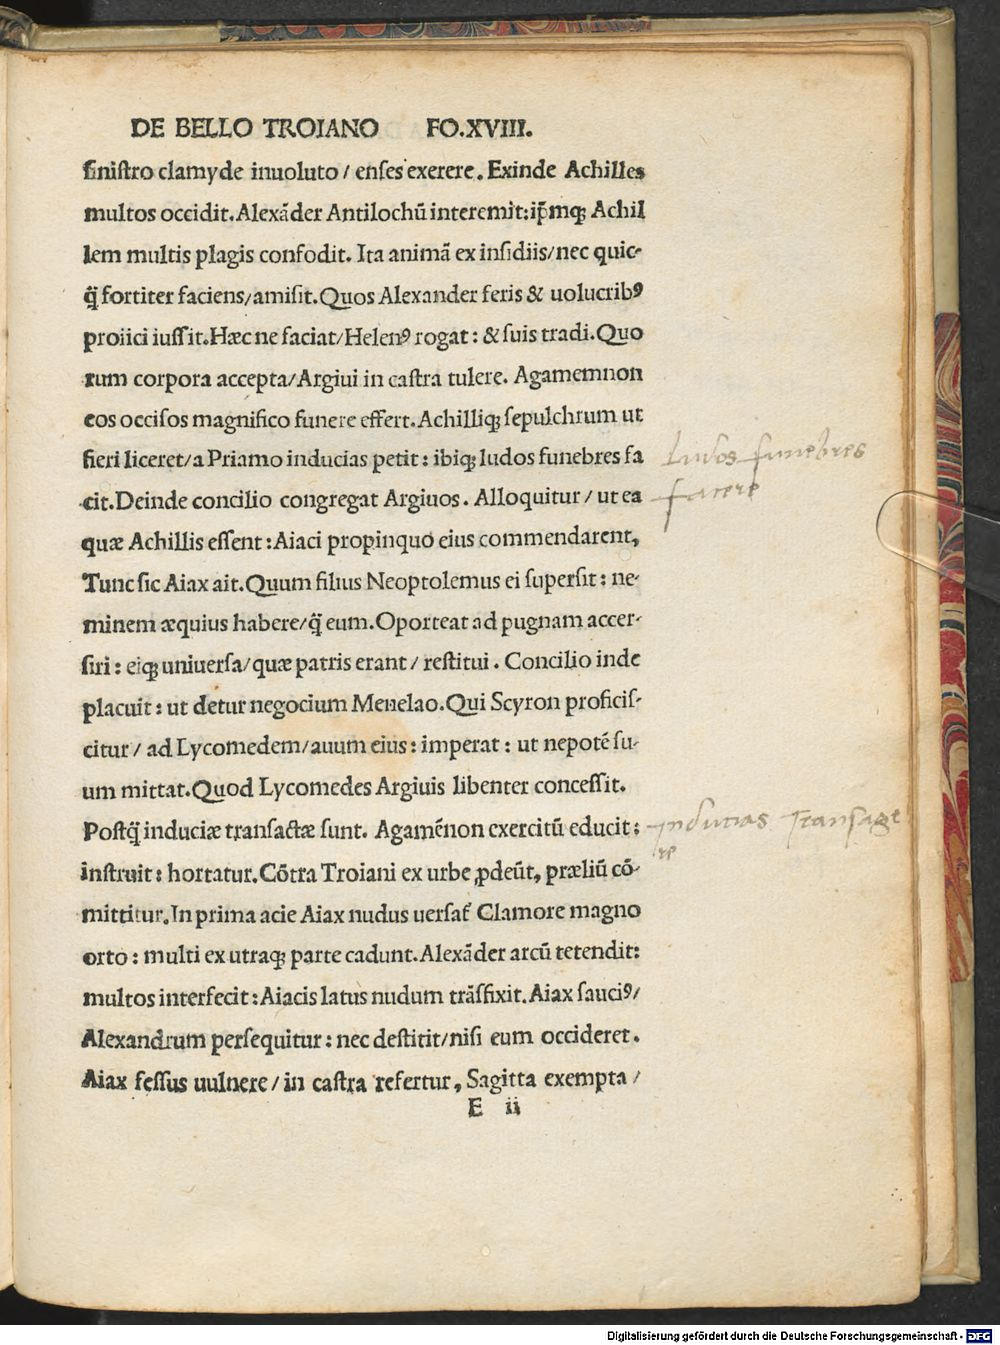 DE BELLO TROIANO FO.XVIII.
siniſtro clamyde inuoluto / enſes exerere. Exinde Achilles
multos occidit. Alexãder Antilochũ interemit: ip̃mq; Achil
lem multis plagis confodit. Ita animã ex inſidiis/nec quic-
q̃ fortiter faciens/amiſit. Quos Alexander feris & uolucribꝰ
proiici iuſſit. Hæc ne faciat/Helenꝰ rogat: & ſuis tradi. Quo
rum corpora accepta/Argiui in caſtra tulere. Agamemnon
eos occiſos magnifico funere effert. Achilliq; ſepulchrum ut
fieri liceret/a Priamo inducias petit: ibiq; ludos funebres fa
cit. Deinde concilio congregat Argiuos. Alloquitur/ut ea
quæ Achillis eſſent: Aiaci propinquo eius commendarent,
Tunc ſic Aiax ait. Quum filius Neoptolemus ei ſuperſit: ne-
minem æquius habere/q̃ eum. Oporteat ad pugnam accer-
ſiri: eiq; uniuerſa/quæ patris erant/reſtitui. Concilio inde
placuit: ut detur negocium Menelao. Qui Scyron proficiſ-
citur/ad Lycomedem/auum eius: imperat: ut nepotẽ ſu-
um mittat. Quod Lycomedes Argiuis libenter conceſſit.
Poſtq̃ induciæ tranſactæ ſunt. Agamẽnon exercitũ educit:
inſtruit: hortatur. Cõtra Troiani ex urbe ꝓdeũt, præliũ cõ-
mittitur. In prima acie Aiax nudus uerſat᷑ Clamore magno
orto: multi ex utraq; parte cadunt. Alexãder arcũ tetendit:
multos interfecit: Aiacis latus nudum trãſfixit. Aiax ſauciꝰ/
Alexandrum perſequitur: nec deſtitit/niſi eum occideret.
Aiax feſſus uulnere/in caſtra refertur, Sagitta exempta/
E ii
ludos funebres
facere
Inducias transage
re
Digitalisierung gefördert durch die Deutsche Forschungsgemeinschaft - DFG